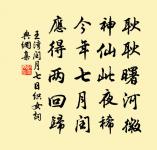 耿耿曙河微
神仙此夜稀
今年七月閏
應得兩回歸
王灣閏月七日織女詞